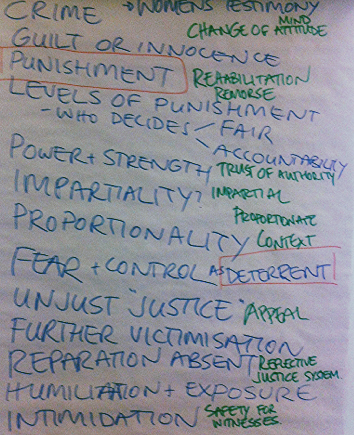 CRIME → WOMENS TESTIMONY
CHANGE OF MIND ATTITUDE
GUILT OR INNOCENCE
PUNISHMENT REHABILITATION
REMORSE
LEVELS OF PUNISHMENT
- WHO DECIDES FAIR
ACCOUNTABILITY
POWER + STRENGTH TRUST OF AUTHORITY
IMPARTIALITY? IMPARTIAL
PROPORTIONATE
PROPORTIONALITY CONTEXT
FEAR + CONTROL AS DETERRENT
UNJUST "JUSTICE" APPEAL
FURTHER VICTIMISATION
REPARATION ABSENT REFLECTIVE
JUSTICE SYSTEM.
HUMILIATION + EXPOSURE
INTIMIDATION SAFETY FOR
WITNESSES.